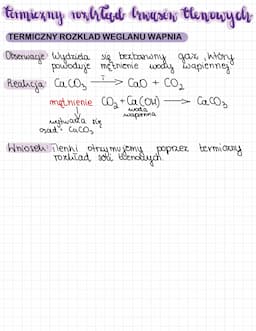 termiczny rozkład kwasów tlenowych
TERMICZNY ROZKŁAD WĘGLANU WAPNIA
Obserwacje Wydziela się bezbarwny gaz, który
powoduje mętnienie wody wapiennej
Reakcja CaCO₃ —T→ CaO + CO₂
mętnienie CO₂ + Ca(OH) → CaCO₃
woda
wapienna
wytwarza się
osad CaCO₃
Wniosek Tlenki otrzymujemy poprzez termiczny
rozkład soli tlenowych.